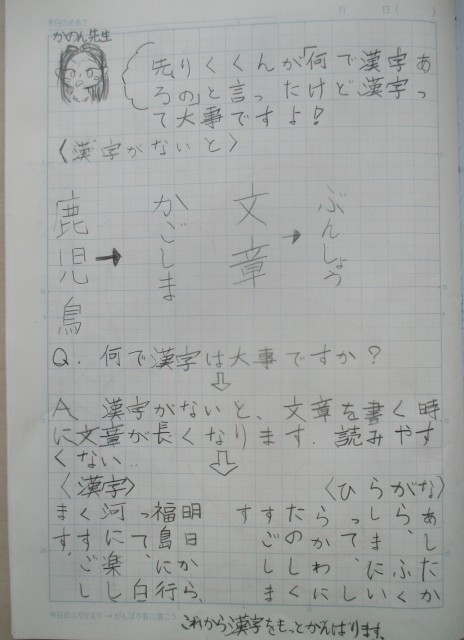 今日のめあて
月 日( )
かのん先生
先りくくんが「何で漢字あ
るの」と言ったけど漢字っ
て大事ですよ!
〈漢字がないと〉
文章
→
ぶんしょう
鹿児鳥
→
かごしま
Q. 何で漢字は大事ですか?
⇩
A 漢字がないと、文章を書く時
に文章が長くなります。読みやす
くない..
⇩
〈ひらがな〉
あしたか
ら、ふく
しま、にい
って、し
らかわに
たのしく
すごしま
す
〈漢字〉
明日から、
福島に行
って、白
河に楽し
くすごし
ます。
これから漢字をもっとがんばります。